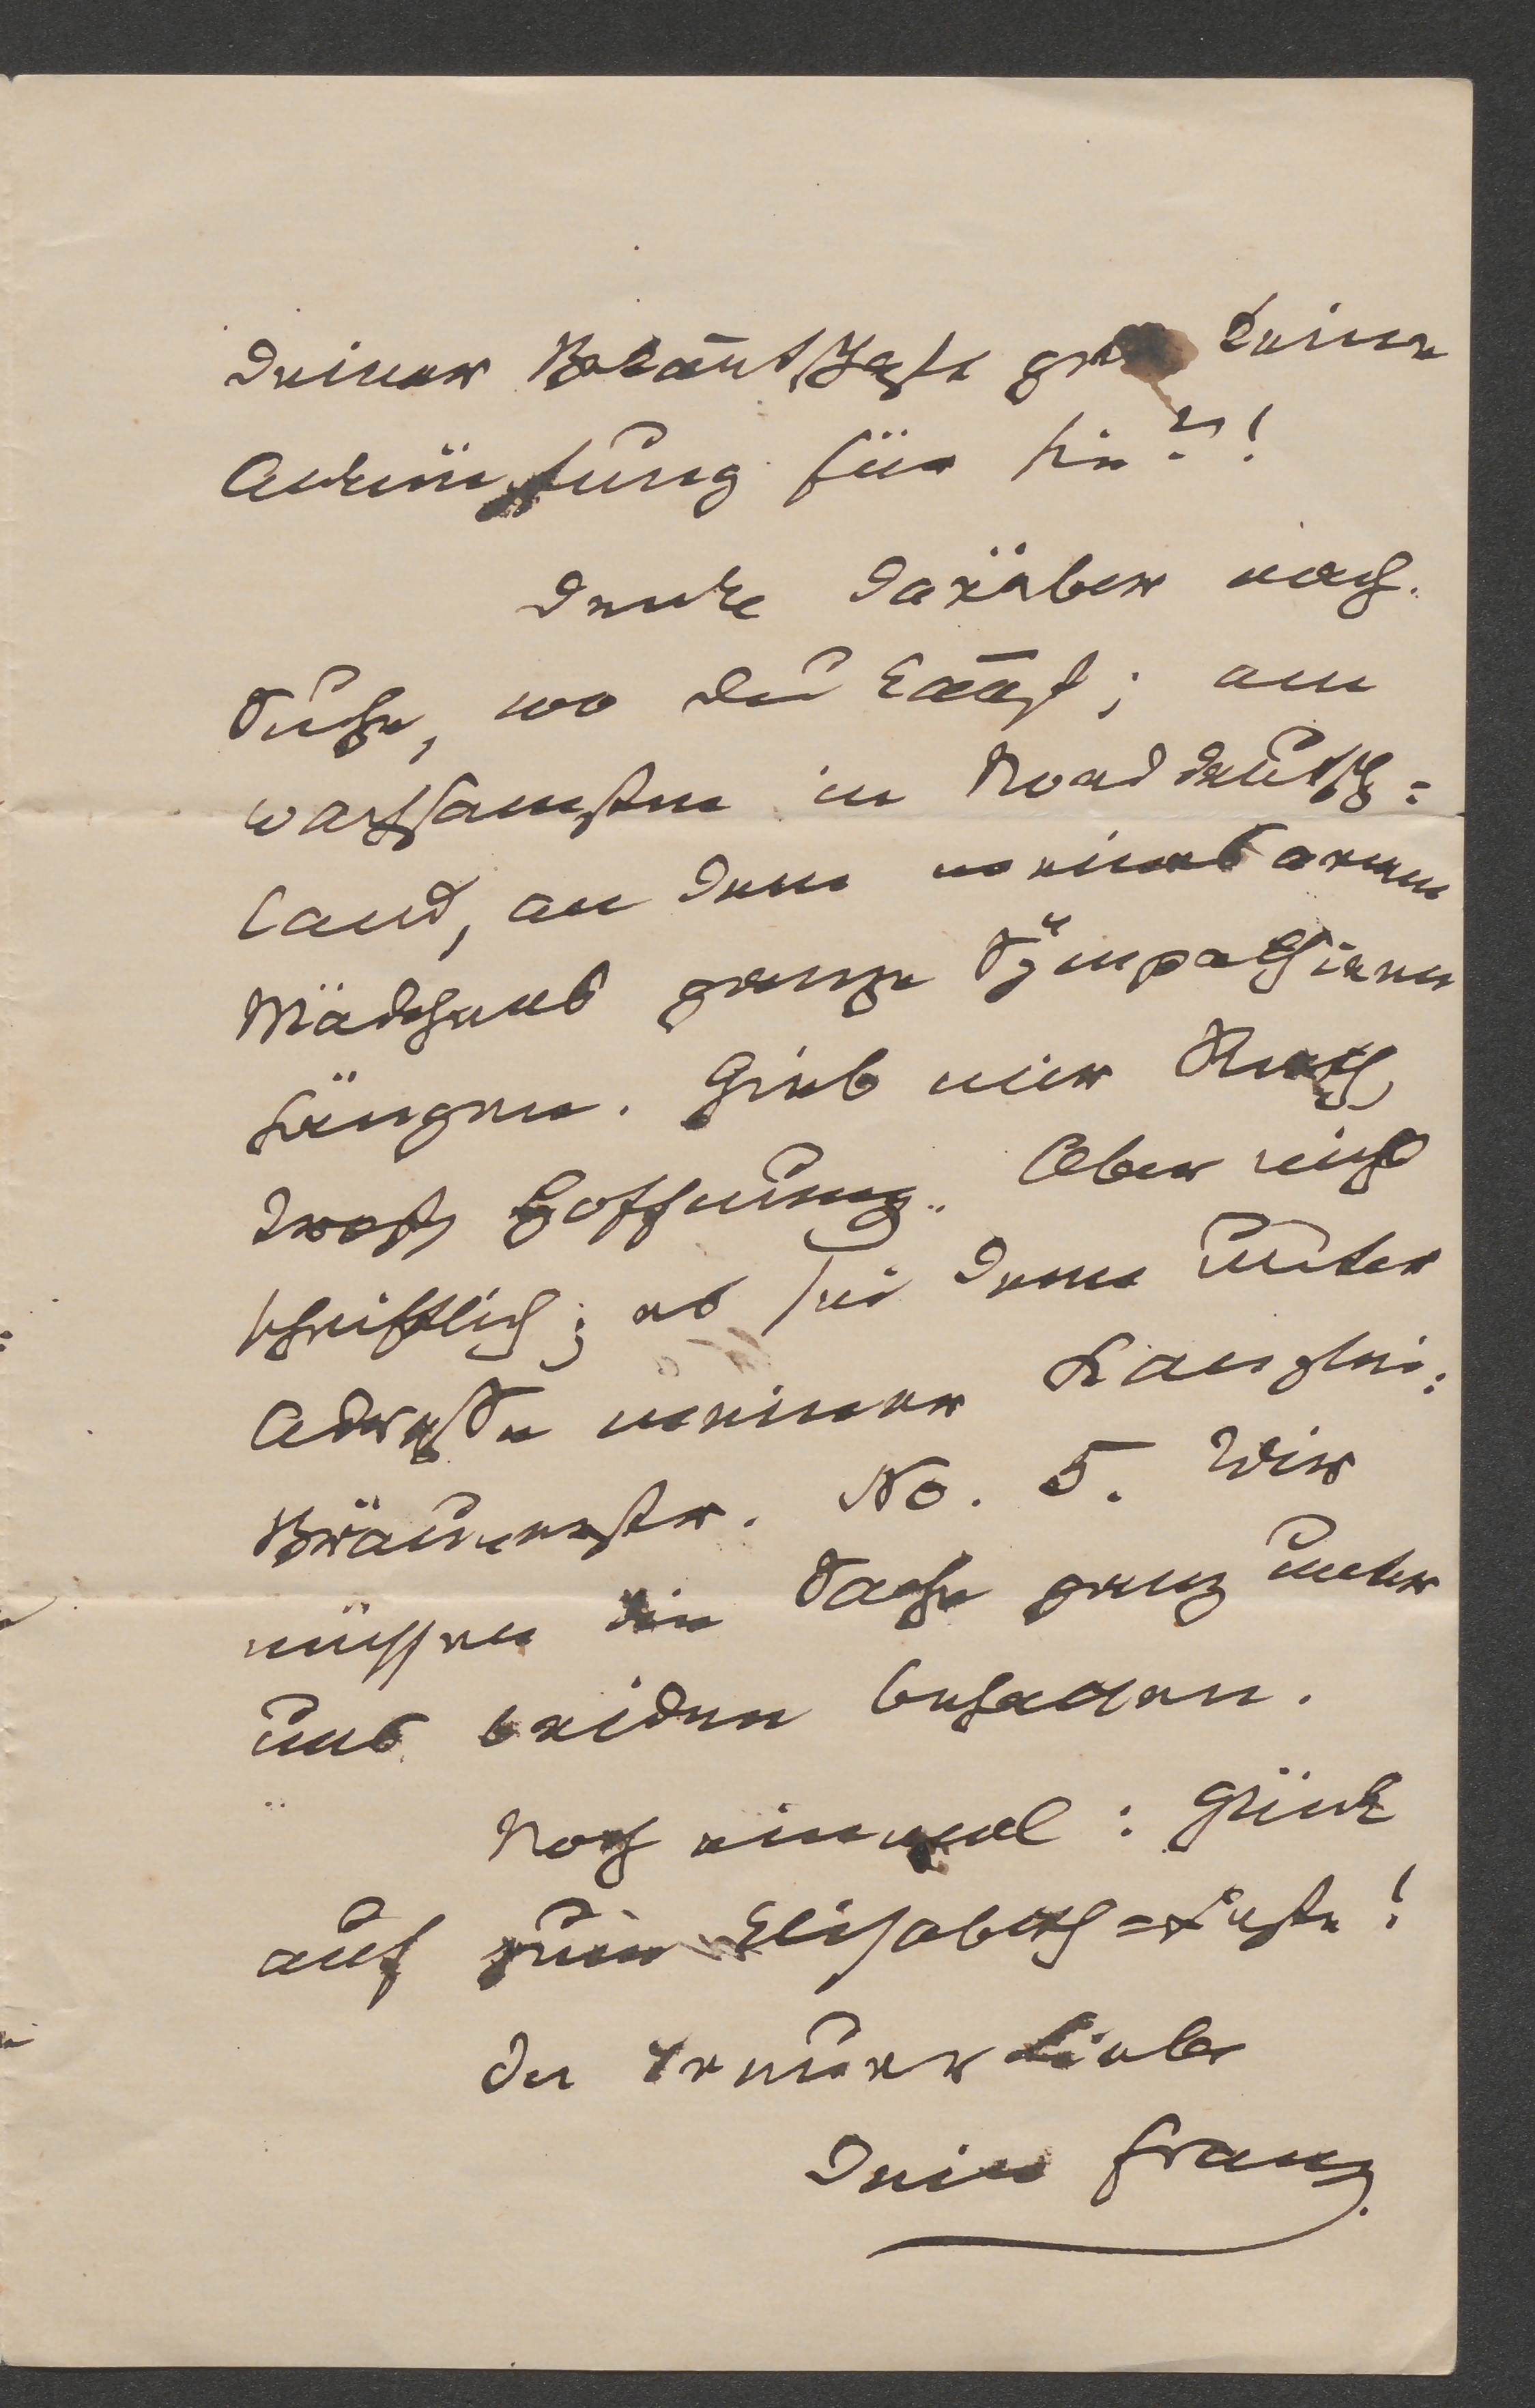 Deiner Bekañtschaft gar keine
Anknüpfung für sie?!
Denke darüber nach.
Suche, wo Du kañst; am
wachsamsten in Norddeutsch=
land, an dem meines armen
Mädchens ganze Sÿmpathieen
hängen. Gieb mir Rath,
Trost, Hoffnung. Aber nicht
schriftlich; es sei denn unter
Adresse meiner Kanzlei:
Bräunerstr. No. 5. Wir
müssen die Sache ganz unter
uns beiden behalten.
Noch einmal: Glück
auf zum Elisabeth=Feste!
In treuer Liebe
Dein Franz.